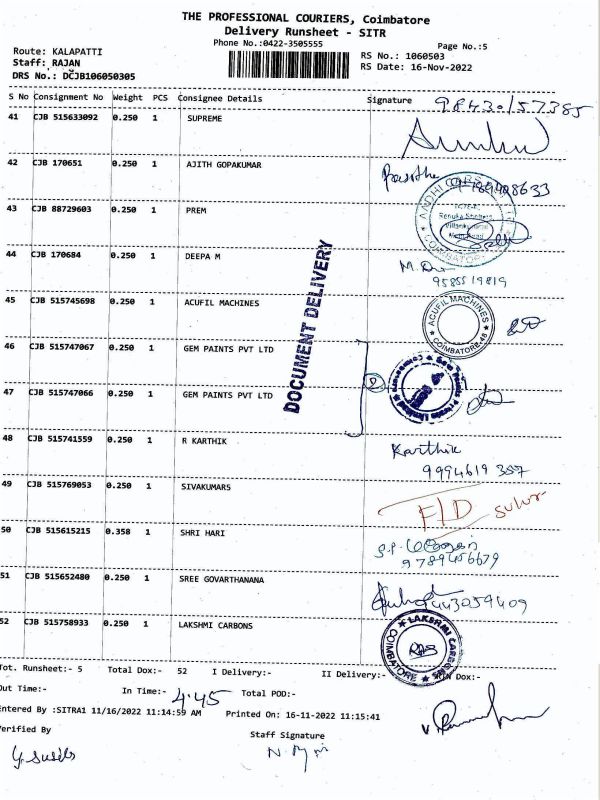 THE PROFESSIONAL COURIERS, Coimbatore
Delivery Runsheet - SITR
Phone No.:0422-3505555
Page No.:5
Route: KALAPATTI
Staff: RAJAN
DRS No.: DCJB106050305
RS No.: 1060503
RS Date: 16-Nov-2022
S No Consignment No Weight PCS Consignee Details Signature
98430157385
41 CJB 515633092 0.250 1 SUPREME
42 CJB 170651 0.250 1 AJITH GOPAKUMAR
43 CJB 88729603 0.250 1 PREM
COIMBATORE
44 CJB 170684 0.250 1 DEEPA M
9585519819
DOCUMENT DELIVERY
45 CJB 515745698 0.250 1 ACUFIL MACHINES
ACUFIL MACHINES
COIMBATORE-48
46 CJB 515747067 0.250 1 GEM PAINTS PVT LTD
2
47 CJB 515747066 0.250 1 GEM PAINTS PVT LTD
48 CJB 515741559 0.250 1 R KARTHIK
Karthik
9994619 387
49 CJB 515769053 0.250 1 SIVAKUMARS
F/D sulur
50 CJB 515615215 0.358 1 SHRI HARI
9789456679
51 CJB 515652480 0.250 1 SREE GOVARTHANANA
9443059409
52 CJB 515758933 0.250 1 LAKSHMI CARBONS
LAKSHMI CARBONS
COIMBATORE
Tot. Runsheet:- 5 Total Dox:- 52 I Delivery:- II Delivery:- Dox:-
Out Time:- In Time:- 4.45 Total POD:-
Entered By :SITRA1 11/16/2022 11:14:59 AM Printed On: 16-11-2022 11:15:41
Verified By Staff Signature